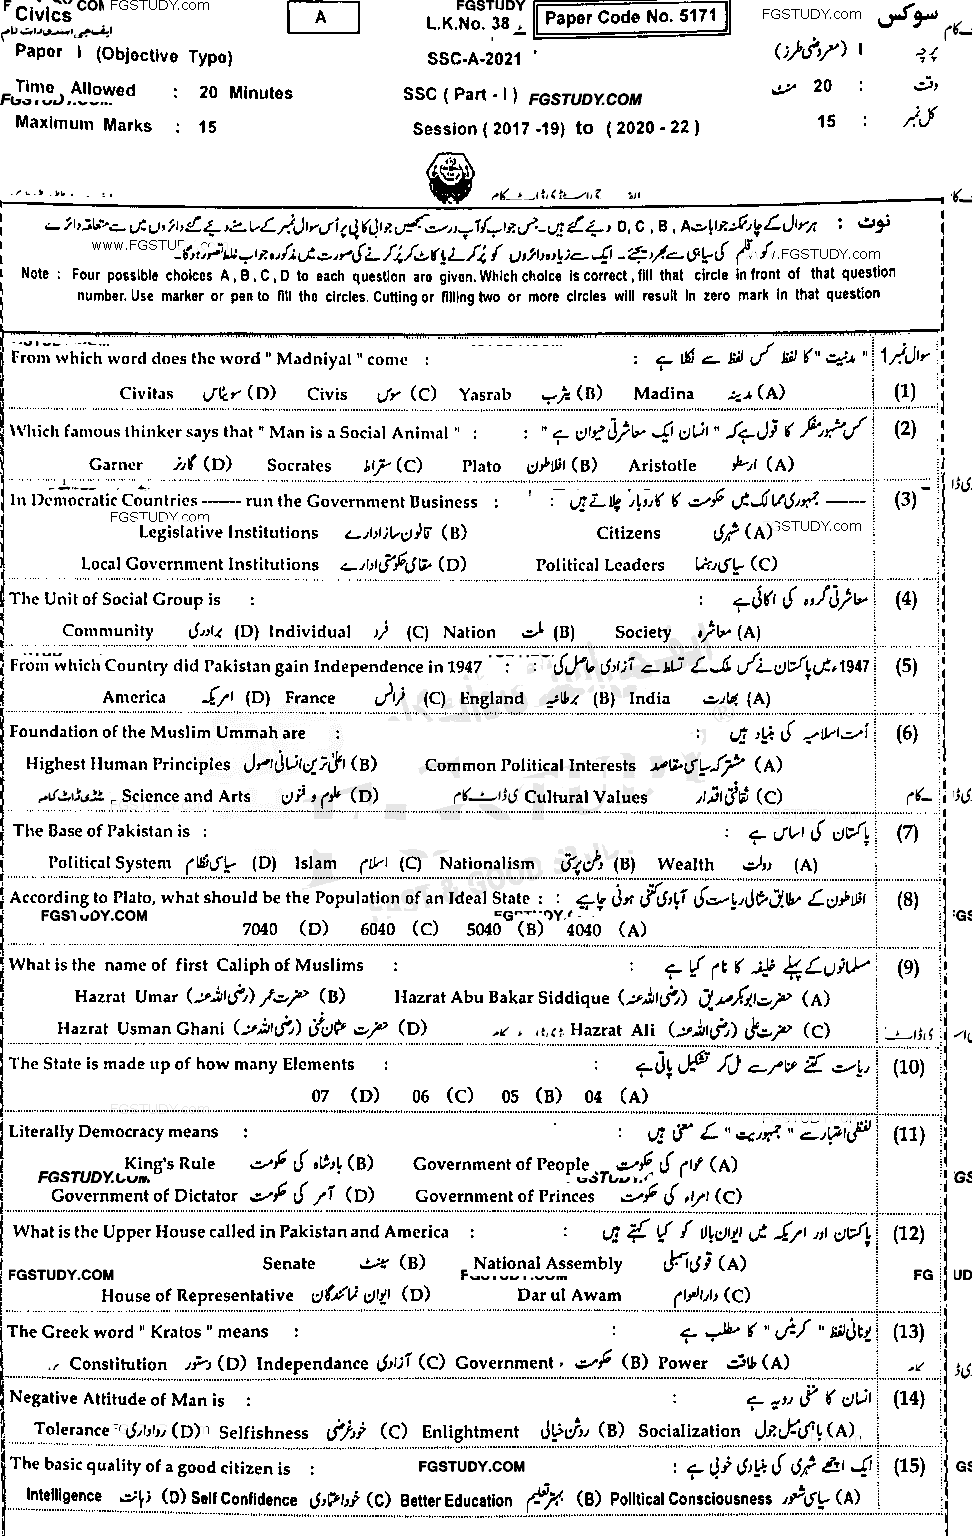 Civics FGSTUDY.com A FGSTUDY L.K.No. 38 Paper Code No. 5171 FGSTUDY.com سوکس
Paper I (Objective Type) SSC-A-2021 پرچہ I (معروضی طرز)
Time Allowed : 20 Minutes SSC ( Part - I ) FGSTUDY.COM وقت : 20 منٹ
Maximum Marks : 15 Session ( 2017 -19) to ( 2020 - 22 ) کل نمبر : 15
نوٹ : ہر سوال کے چار ممکنہ جوابات D, C, B, A دیئے گئے ہیں۔ جس جواب کو آپ درست سمجھیں جوابی کاپی پر اُس سوال نمبر کے سامنے دیئے گئے دائروں میں سے متعلقہ دائرے
کو قلم کی سیاہی سے بھر دیجئے۔ ایک سے زیادہ دائروں کو پُر کرنے یا کاٹ کر پُر کرنے کی صورت میں مذکورہ جواب غلط تصور ہوگا۔ FGSTUDY.com
Note : Four possible choices A , B, C, D to each question are given. Which choice is correct, fill that circle in front of that question
number. Use marker or pen to fill the circles. Cutting or filling two or more circles will result in zero mark in that question
From which word does the word " Madniyal " come : : " مدنیت " کا لفظ کس لفظ سے نکلا ہے سوال نمبر 1
Civitas سویٹاس (D) Civis سوس (C) Yasrab یثرب (B) Madina مدینہ (A) (1)
Which famous thinker says that " Man is a Social Animal " : : کس مشہور مفکر کا قول ہے کہ " انسان ایک معاشرتی حیوان ہے " (2)
Garner گارنر (D) Socrates سقراط (C) Plato افلاطون (B) Aristotle ارسطو (A)
In Democratic Countries ------- run the Government Business : : ------- جمہوری ممالک میں حکومت کا کاروبار چلاتے ہیں (3)
FGSTUDY.com Legislative Institutions قانون ساز ادارے (B) Citizens شہری (A) GSTUDY.com
Local Government Institutions مقامی حکومتی ادارے (D) Political Leaders سیاسی رہنما (C)
The Unit of Social Group is : : معاشرتی گروہ کی اکائی ہے (4)
Community برادری (D) Individual فرد (C) Nation ملت (B) Society معاشرہ (A)
From which Country did Pakistan gain Independence in 1947 : : 1947ء میں پاکستان نے کس ملک کے تسلط سے آزادی حاصل کی (5)
America امریکہ (D) France فرانس (C) England برطانیہ (B) India بھارت (A)
Foundation of the Muslim Ummah are : : اُمت اسلامیہ کی بنیاد ہیں (6)
Highest Human Principles اعلیٰ ترین انسانی اصول (B) Common Political Interests مشترکہ سیاسی مقاصد (A)
Science and Arts علوم و فنون (D) Cultural Values ثقافتی اقدار (C)
The Base of Pakistan is : : پاکستان کی اساس ہے (7)
Political System سیاسی نظام (D) Islam اسلام (C) Nationalism وطن پرستی (B) Wealth دولت (A)
According to Plato, what should be the Population of an Ideal State : : افلاطون کے مطابق مثالی ریاست کی آبادی کتنی ہونی چاہیے (8)
FGSTUDY.COM 7040 (D) 6040 (C) 5040 (B) 4040 (A)
What is the name of first Caliph of Muslims : : مسلمانوں کے پہلے خلیفہ کا نام کیا ہے (9)
Hazrat Umar حضرت عمر (رضی اللہ عنہ) (B) Hazrat Abu Bakar Siddique حضرت ابوبکر صدیق (رضی اللہ عنہ) (A)
Hazrat Usman Ghani حضرت عثمان غنی (رضی اللہ عنہ) (D) Hazrat Ali حضرت علی (رضی اللہ عنہ) (C)
The State is made up of how many Elements : : ریاست کتنے عناصر سے مل کر تشکیل پاتی ہے (10)
07 (D) 06 (C) 05 (B) 04 (A)
Literally Democracy means : : لفظی اعتبار سے " جمہوریت " کے معنی ہیں (11)
King's Rule بادشاہ کی حکومت (B) Government of People عوام کی حکومت (A)
FGSTUDY.COM
Government of Dictator آمر کی حکومت (D) Government of Princes امراء کی حکومت (C)
What is the Upper House called in Pakistan and America : : پاکستان اور امریکہ میں ایوان بالا کو کیا کہتے ہیں (12)
Senate سینٹ (B) National Assembly قومی اسمبلی (A)
FGSTUDY.COM
House of Representative ایوان نمائندگان (D) Dar ul Awam دارالعوام (C)
The Greek word " Kratos " means : : یونانی لفظ " کریٹس " کا مطلب ہے (13)
Constitution دستور (D) Independance آزادی (C) Government حکومت (B) Power طاقت (A)
Negative Attitude of Man is : : انسان کا منفی رویہ ہے (14)
Tolerance رواداری (D) Selfishness خود غرضی (C) Enlightment روشن خیالی (B) Socialization باہمی میل جول (A)
The basic quality of a good citizen is : FGSTUDY.COM : ایک اچھے شہری کی بنیادی خوبی ہے (15)
Intelligence ذہانت (D) Self Confidence خود اعتمادی (C) Better Education بہتر تعلیم (B) Political Consciousness سیاسی شعور (A)